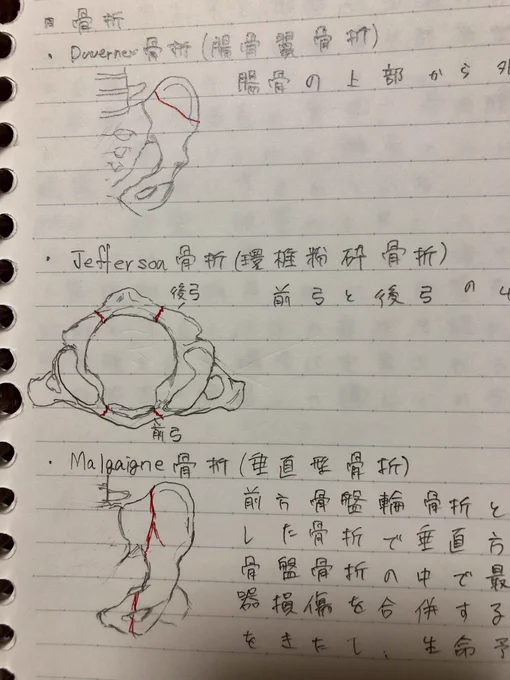 骨折
・Duverney骨折(腸骨翼骨折)
腸骨の上部から外
・Jefferson骨折(環椎粉砕骨折)
後弓
前弓と後弓の
前弓
・Malgaigne骨折(垂直型骨折)
前方骨盤輪骨折と
した骨折で垂直方
骨盤骨折の中で最
器損傷を合併する
をきたし、生命予